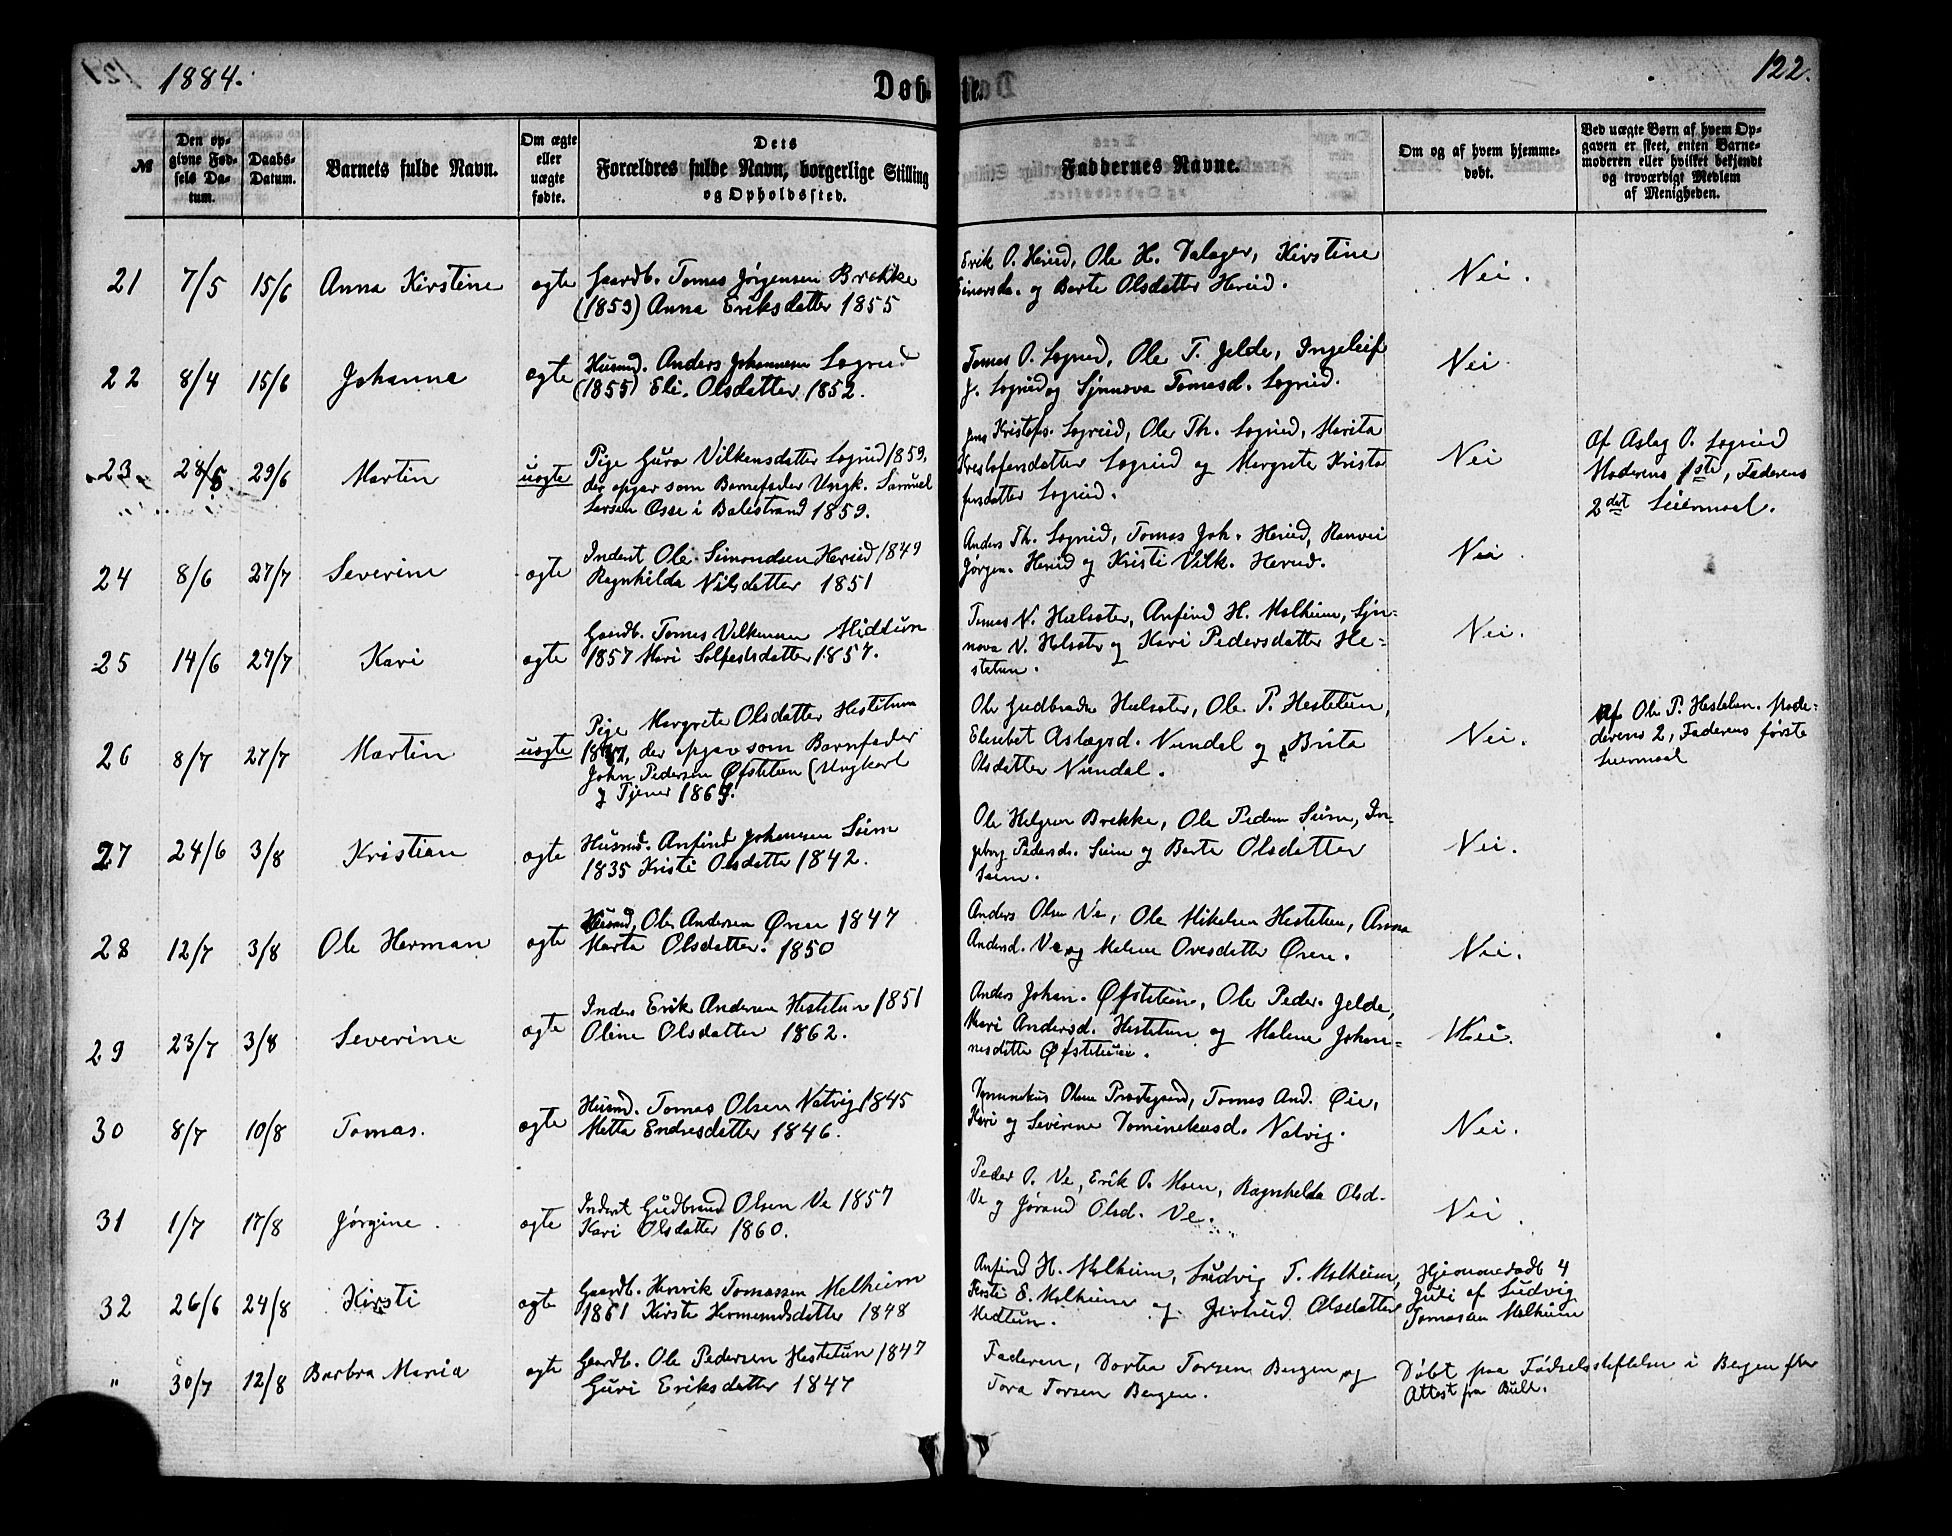 1884.
Døbte.
122.
№
Den opgivne Fødsels Datum.
Daabs-Datum.
Barnets fulde Navn.
Om ægte eller uægte fødte.
Dets Forældres fulde Navn, borgerlige Stilling og Opholdssted.
Faddernes Navne.
Om og af hvem hjemmedøbt.
Ved uægte Børn af hvem Opgaven er skeet, enten Barnemoderen eller hvilket bekjendt og troværdigt Medlem af Menigheden.
21 7/5 15/6 Anna Kirstine ægte
Gaardb. Tomas Jørgensen Brekke
(1853) Anna Eriksdatter 1855
Erik O. Hereid, Ole H. Dalager, Kirstine
Einarsda. og Barte Olsdatter Hereid.
Nei.
22 8/4 15/6 Johanna ægte
Husmd. Anders Johannesen Sogned
(1855) Eli Olsdatter 1852.
Tomas O. Sogned, Ole T. Jelde, Ingeleif
J. Sogned og Synnøva Tomasd. Sogned.
Nei
23 28/5 29/6 Martin uægte
Pige Guro Vilkensdatter Sogned 1859,
der opgav som Barnefader Ungk. Samuel
Larsen Esse i Balestrand 1859.
Jens Kristofs. Sogned, Ole Th. Sogned, Marita
Kristofersdatter Sogned og Margrete Kristo
fersdatter Sogned.
Nei
Af Aslag O. Sogned
Moderens 1ste, Faderens
2det Leiermaal.
24 8/6 27/7 Severine ægte
Inderst Ole Simondsen Hereid 1849
Ragnhilda Nilsdatter 1851
Anders Th. Sogned, Tomas Joh. Hereid, Ranvei
Jørgen. Hereid og Kristi Vilk. Hereid.
Nei
25 14/6 27/7 Kari ægte
Gaardb. Tomas Vilkensen Midtun
1857 Mari Solfestsdatter 1857.
Tomas N. Hulsæter, Anfind H. Melheim, Syn-
nova N. Hulsæter og Kari Pedersdatter He-
stetun.
Nei.
26 8/7 27/7 Martin uægte
Pige Margrete Olsdatter Hestetun
der opgav som Barnfader
John Pedersen Øfstetun (Ungkarl
og Tjener 1861.
Ole Gudbrands Hulsæter, Ole P. Hestetun,
Elisebet Aslagsd. Nundal og Brita
Olsdatter Nundal.
Nei.
Af Ole P. Hestetun. Mode-
derens 2, Faderens første
Leiermaal
27 24/6 3/8 Kristian ægte
Husmd. Anfind Johansen Seim
1835 Kristi Olsdatter 1842.
Ole Helgesen Brekke, Ole Peders Seim, In-
geborg Pedersdr. Seim og Barte Olsdatter
Seim.
Nei.
28 12/7 3/8 Ole Herman ægte
Husmd, Ole Andersen Øren 1847
Marta Olsdatter. 1850
Anders Olsen Ve, Ole Mikelsen Hestetun, Anna
Andersd. Ve og Malene Ovesdatter Øren.
Nei.
29 23/7 3/8 Severine ægte
Inders Erik Andersen Hestetun 1851
Oline Olsdatter 1862.
Anders Johan. Øfstetun, Ole Peder. Jelde,
Mari Andersd. Hestetun og Malene Johan-
nesdatter Øfstetun.
Nei.
30 8/7 10/8 Tomas. ægte
Husmd. Tomas Olsen Natvig 1845
Metta Endresdatter 1846.
Domenikus Olsen Prestegaard, Tomas And. Øie,
Kari og Severine Dominekusd. Natvig.
Nei.
31 1/7 17/8 Jørgine. ægte
Inderst Gudbrand Olsen Ve 1857
Kari Olsdatter 1860.
Peder O. Ve, Erik O. Moen, Ragnhilda Olsd.
Ve og Jørand Olsd. Ve.
Nei.
32 26/6 24/8 Kirsti ægte
Gaardb. Henrik Tomassen Melheim
1861 Kirsti Hermundsdatter 1848
Anfind H. Melheim, Ludvig T. Melheim,
Kirsti E. Melheim og Jertrud Olsdatter
Midtun.
Hjemmedøbt 4
Juli af Ludvig
Tomassen Melheim
" 30/7 12/8 Barbra Maria ægte
Gaardb. Ole Pedersen Hestetun 1847
Guri Eriksdatter 1847
Faderen, Dortea Torsen Bergen og
Tora Torsen Bergen.
Døbt paa Fødselsstiftelsen i Bergen efter
Attest fra Bull.